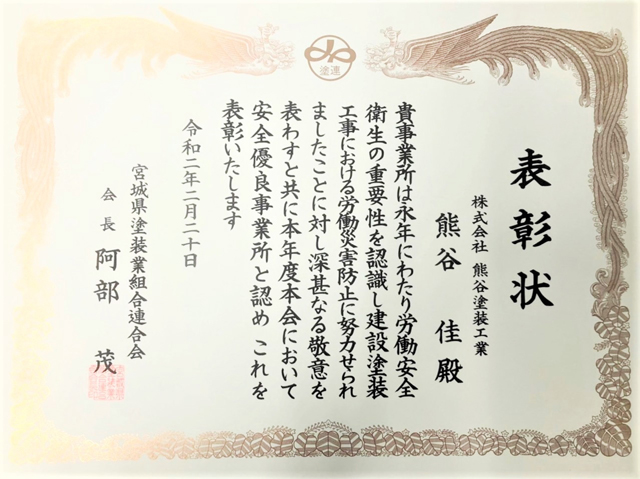 塗連
表彰状
株式会社 熊谷塗装工業
熊谷 佳殿
貴事業所は永年にわたり労働安全
衛生の重要性を認識し建設塗装
工事における労働災害防止に努力せられ
ましたことに対し深甚なる敬意を
表わすと共に本年度本会において
安全優良事業所と認め これを
表彰いたします
令和二年二月二十日
宮城県塗装業組合連合会
会長 阿部 茂